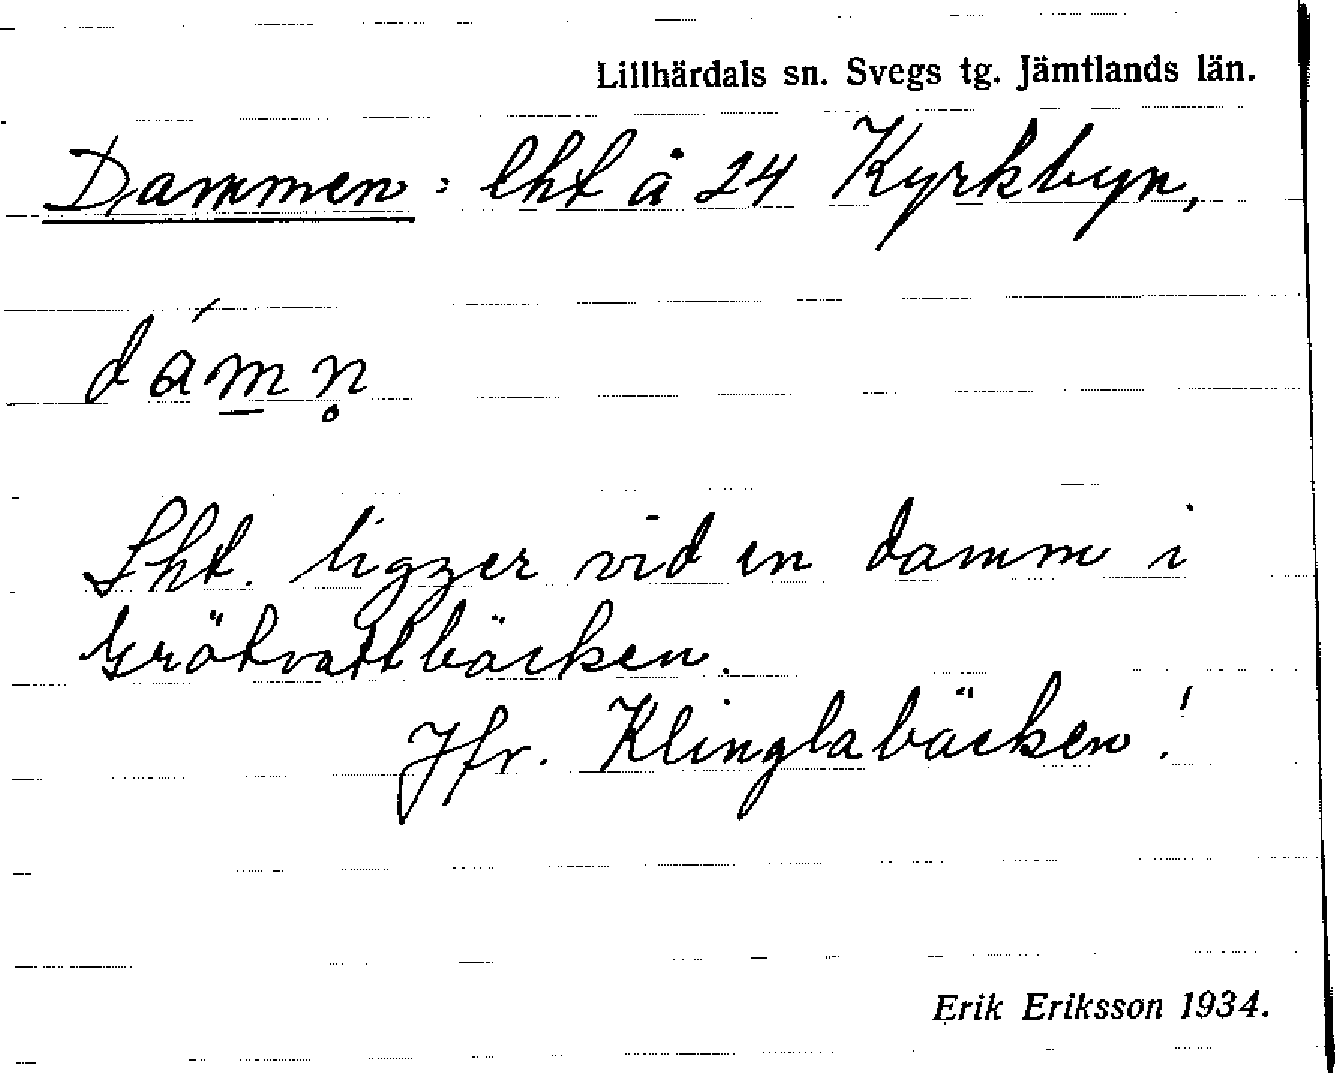 Lillhärdals sn. Svegs tg. Jämtlands län.
Dammen: lht å 24 Kyrkbyn,
dám̲n̥
Lht. ligger vid en damm i
Grötvattbäcken.
Jfr. Klinglabäcken!
Erik Eriksson 1934.